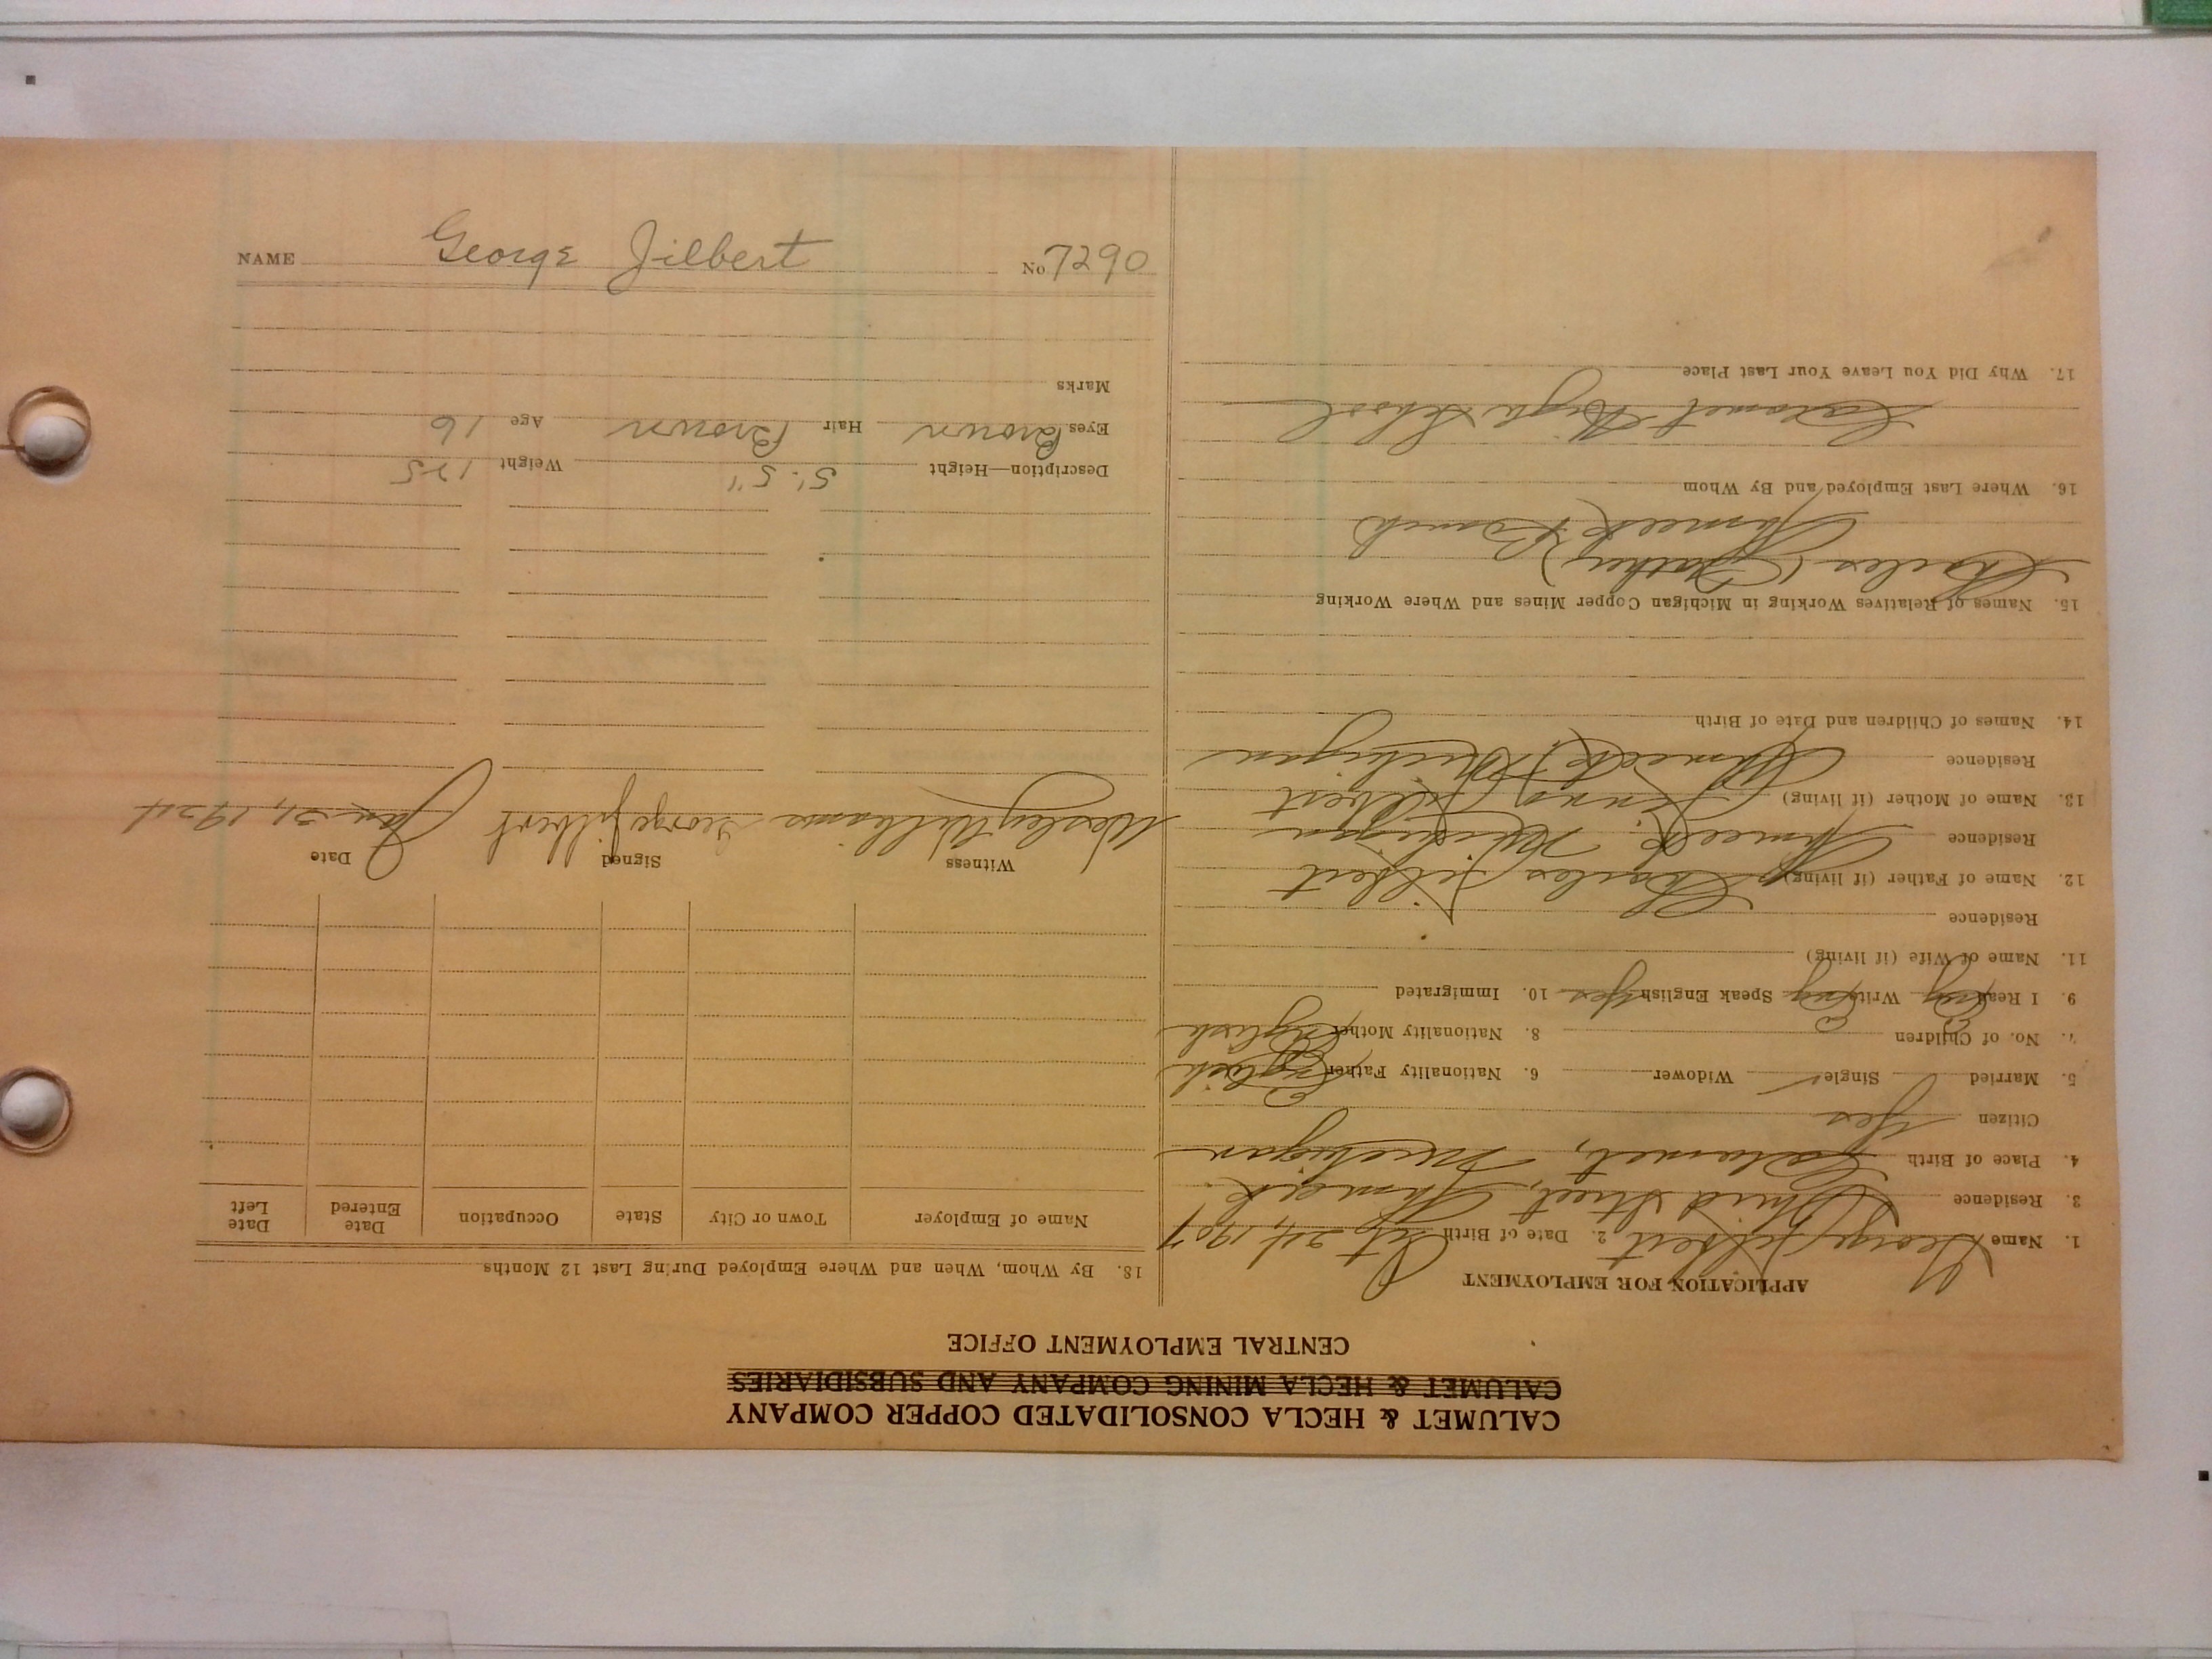 CALUMET & HECLA CONSOLIDATED COPPER COMPANY
CALUMET & HECLA MINING COMPANY AND SUBSIDIARIES
CENTRAL EMPLOYMENT OFFICE
APPLICATION FOR EMPLOYMENT
1. Name George Jilbert 2. Date of Birth Oct 24, 1907
3. Residence Third Street, Ahmeek
4. Place of Birth Calumet, Michigan
Citizen Yes
5. Married Single ✓ Widower 6. Nationality Father English
7. No. of Children 8. Nationality Mother English
9. I Read Eng Write Eng Speak English Yes 10. Immigrated
11. Name of Wife (if living)
Residence
12. Name of Father (if living) Charles Jilbert
Residence Ahmeek, Michigan
13. Name of Mother (if living) Jilbert
Residence Ahmeek, Michigan
14. Names of Children and Date of Birth
15. Names of Relatives Working in Michigan Copper Mines and Where Working
Charles (Father)
Ahmeek Branch
16. Where Last Employed and By Whom
Calumet High School
17. Why Did You Leave Your Last Place
18. By Whom, When and Where Employed During Last 12 Months
Name of Employer Town or City State Occupation Date Entered Date Left
Witness Signed Date
Wesley Williams George Jilbert Jan 31, 1924
Description—Height 5' 5" Weight 125
Eyes Brown Hair Brown Age 16
Marks
NAME George Jilbert No. 7290